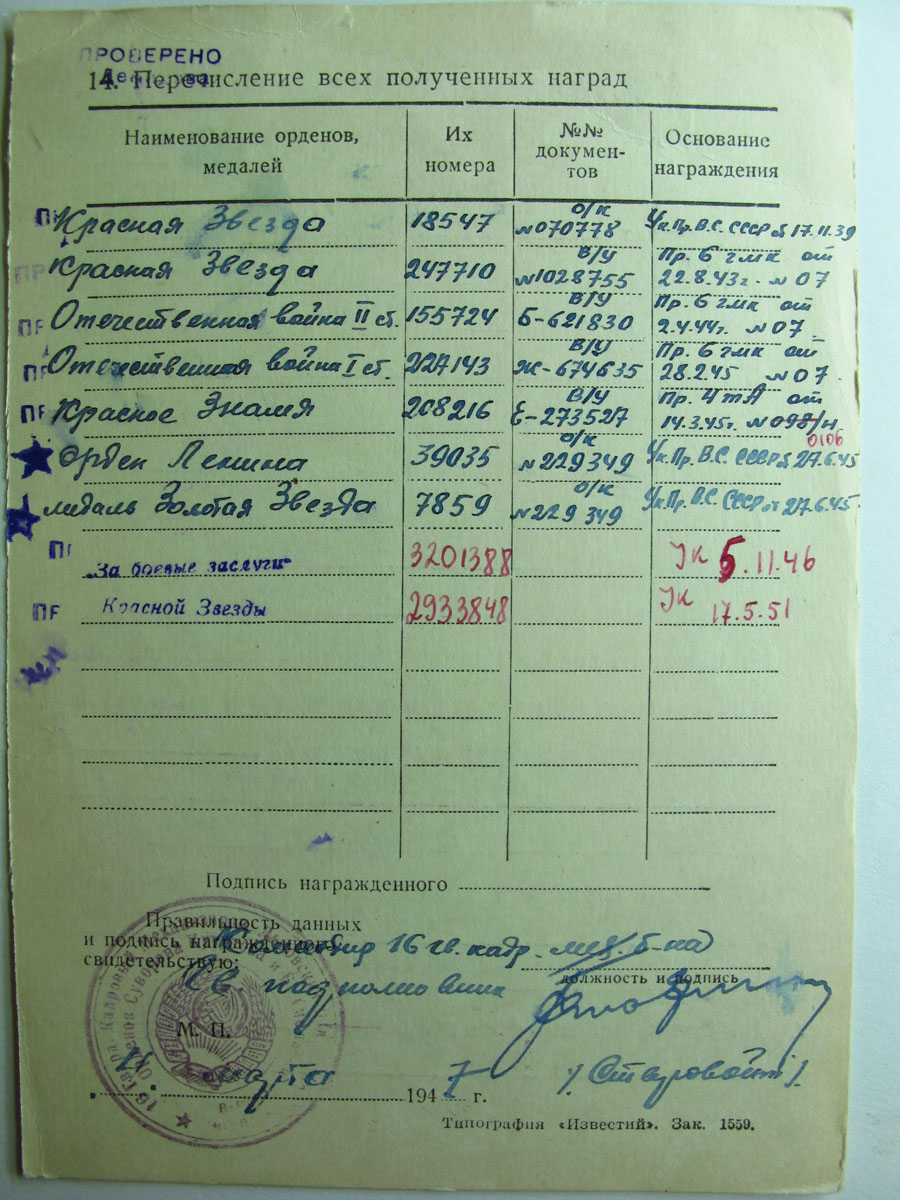 ПРОВЕРЕНО
14. Перечисление всех полученных наград
Наименование орденов, медалей
Их номера
№№ документов
Основание награждения
Красная Звезда 18547 о/к №070778 Ук.Пр.В.С. СССР от 17.11.39
Красная Звезда 247710 в/у №1028755 Пр. 6 гмк от 22.8.43г. №07
Отечественная война II ст. 155724 в/у Б-621830 Пр. 6 гмк от 2.4.44г. №07
Отечественная война I ст. 227143 в/у Ж-674635 Пр. 6 гмк от 28.2.45 №07
Красное Знамя 208216 в/у Е-273527 Пр. 4 тА от 14.3.45г. №098/н
0106
Орден Ленина 39035 о/к №229349 Ук.Пр.В.С. СССР от 27.6.45
медаль Золотая Звезда 7859 о/к №229349 Ук.Пр.В.С. СССР от 27.6.45
"За боевые заслуги" 3201388 Ук 5.11.46
Красной Звезды 2933848 Ук 17.5.51
Подпись награжденного
Правильность данных
и подпись награжденного
свидетельствую:
Командир 16 гв. кадр. мех. б-на
Гв. подполковник
должность и подпись
М. П.
11 марта 1947 г. /Старовойт/
Типография «Известий». Зак. 1559.